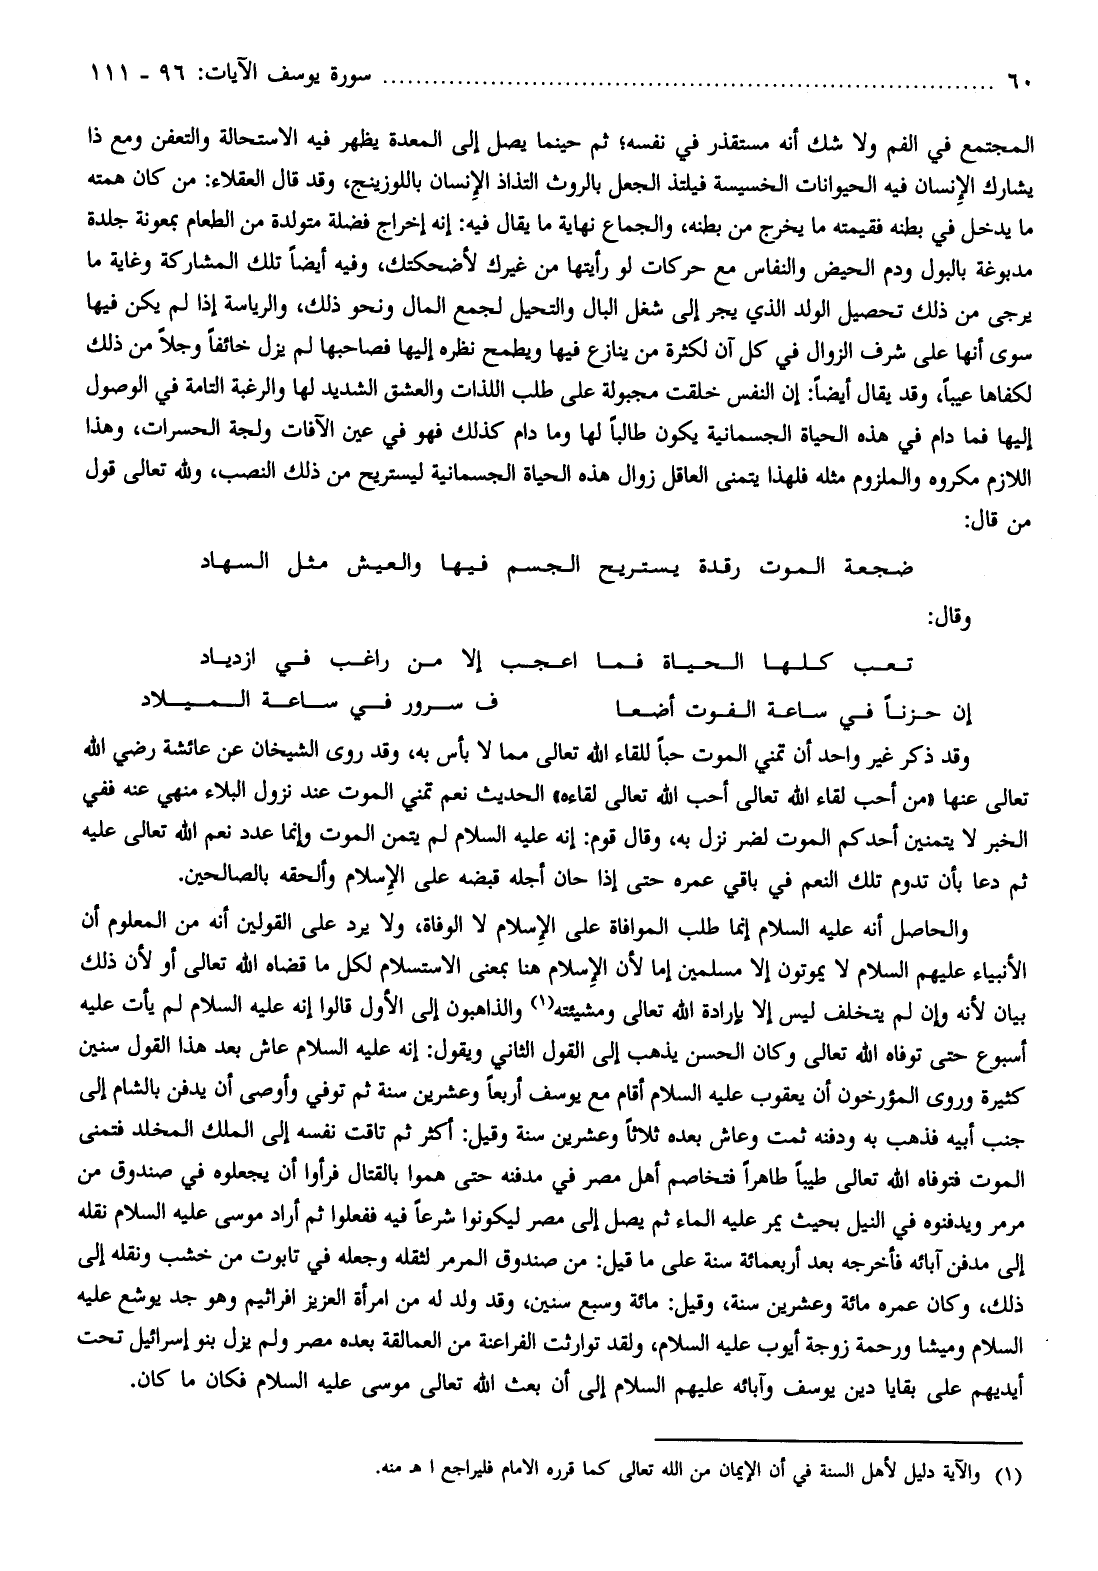 ٦٠ ........................................ سورة يوسف الآيات: ٩٦ - ١١١
المجتمع في الفم ولا شك أنه مستقذر في نفسه؛ ثم حينما يصل إلى المعدة يظهر فيه الاستحالة والتعفن ومع ذا
يشارك الإنسان فيه الحيوانات الخسيسة فيلتذ الجعل بالروث التذاذ الإنسان باللوزينج، وقد قال العقلاء: من كان همته
ما يدخل في بطنه فقيمته ما يخرج من بطنه، والجماع نهاية ما يقال فيه: إنه إخراج فضلة متولدة من الطعام بمعونة جلدة
مدبوغة بالبول ودم الحيض والنفاس مع حركات لو رأيتها من غيرك لأضحكتك، وفيه أيضاً تلك المشاركة وغاية ما
يرجى من ذلك تحصيل الولد الذي يجر إلى شغل البال والتحيل لجمع المال ونحو ذلك، والرياسة إذا لم يكن فيها
سوى أنها على شرف الزوال في كل آن لكثرة من ينازع فيها ويطمح نظره إليها فصاحبها لم يزل خائفاً وجلاً من ذلك
لكفاها عيباً، وقد يقال أيضاً: إن النفس خلقت مجبولة على طلب اللذات والعشق الشديد لها والرغبة التامة في الوصول
إليها فما دام في هذه الحياة الجسمانية يكون طالباً لها وما دام كذلك فهو في عين الآفات ولجة الحسرات، وهذا
اللازم مكروه والملزوم مثله فلهذا يتمنى العاقل زوال هذه الحياة الجسمانية ليستريح من ذلك النصب، ولله تعالى قول
من قال:
ضجعة الموت رقدة يستريح الجسم فيها والعيش مثل السهاد
وقال:
تعب كلها الحياة فما اعجب إلا من راغب في ازدياد
إن حزناً في ساعة الفوت أضعا ف سرور في ساعة الميلاد
وقد ذكر غير واحد أن تمني الموت حباً للقاء الله تعالى مما لا بأس به، وقد روى الشيخان عن عائشة رضي الله
تعالى عنها «من أحب لقاء الله تعالى أحب الله تعالى لقاءه» الحديث نعم تمني الموت عند نزول البلاء منهي عنه ففي
الخبر لا يتمنين أحدكم الموت لضر نزل به، وقال قوم: إنه عليه السلام لم يتمن الموت وإنما عدد نعم الله تعالى عليه
ثم دعا بأن تدوم تلك النعم في باقي عمره حتى إذا حان أجله قبضه على الإسلام وألحقه بالصالحين.
والحاصل أنه عليه السلام إنما طلب الموافاة على الإسلام لا الوفاة، ولا يرد على القولين أنه من المعلوم أن
الأنبياء عليهم السلام لا يموتون إلا مسلمين إما لأن الإسلام هنا بمعنى الاستسلام لكل ما قضاه الله تعالى أو لأن ذلك
بيان لأنه وإن لم يتخلف ليس إلا بإرادة الله تعالى ومشيئته(١) والذاهبون إلى الأول قالوا إنه عليه السلام لم يأت عليه
أسبوع حتى توفاه الله تعالى وكان الحسن يذهب إلى القول الثاني ويقول: إنه عليه السلام عاش بعد هذا القول سنين
كثيرة وروى المؤرخون أن يعقوب عليه السلام أقام مع يوسف أربعاً وعشرين سنة ثم توفي وأوصى أن يدفن بالشام إلى
جنب أبيه فذهب به ودفنه ثمت وعاش بعده ثلاثاً وعشرين سنة وقيل: أكثر ثم تاقت نفسه إلى الملك المخلد فتمنى
الموت فتوفاه الله تعالى طيباً طاهراً فتخاصم أهل مصر في مدفنه حتى هموا بالقتال فرأوا أن يجعلوه في صندوق من
مرمر ويدفنوه في النيل بحيث يمر عليه الماء ثم يصل إلى مصر ليكونوا شرعاً فيه ففعلوا ثم أراد موسى عليه السلام نقله
إلى مدفن آبائه فأخرجه بعد أربعمائة سنة على ما قيل: من صندوق المرمر لثقله وجعله في تابوت من خشب ونقله إلى
ذلك، وكان عمره مائة وعشرين سنة، وقيل: مائة وسبع سنين، وقد ولد له من امرأة العزيز افراثيم وهو جد يوشع عليه
السلام وميشا ورحمة زوجة أيوب عليه السلام، ولقد توارثت الفراعنة من العمالقة بعده مصر ولم يزل بنو إسرائيل تحت
أيديهم على بقايا دين يوسف وآبائه عليهم السلام إلى أن بعث الله تعالى موسى عليه السلام فكان ما كان.
(١) والآية دليل لأهل السنة في أن الإيمان من الله تعالى كما قرره الامام فليراجع ا هـ منه.